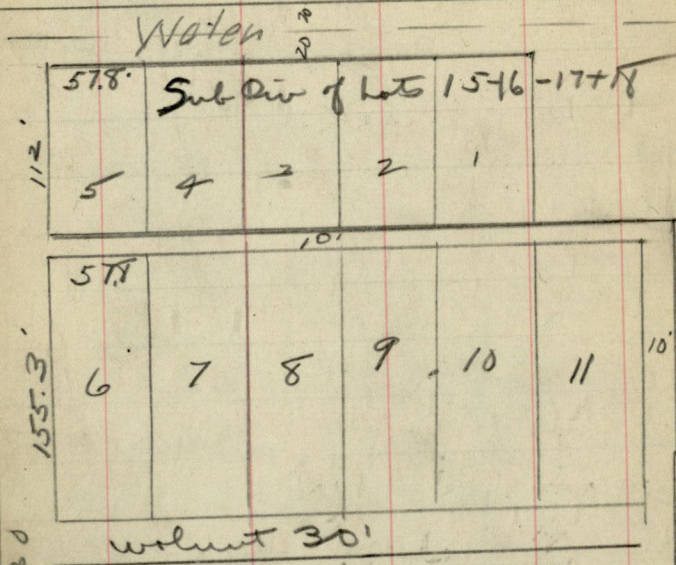 Water 20 20
57.8' Sub Div of Lots 15-16-17+18
112'
5 4 3 2 1
10'
57.8
155.3'
6 7 8 9 10 11
10'
walnut 30'